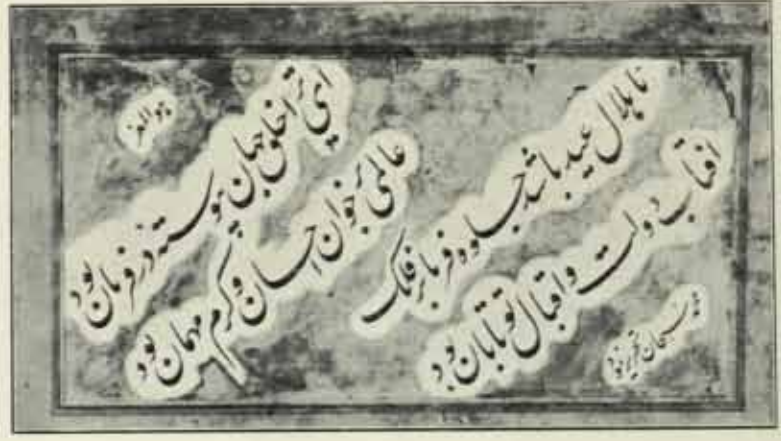 هو المعز
ای ترا خلق جهان پیوسته در فرمان بود
عالمی بر خوان احسان و کرم مهمان بود
تا هلال عید باشد جلوه فرما بر فلک
افتاب دولت و اقبال تو تابان بود